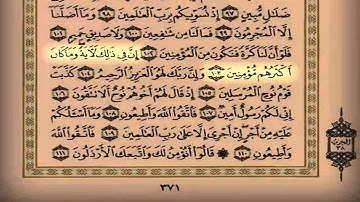 ضَلَٰلٍ مُّبِينٍ ٩٧ إِذْ نُسَوِّيكُم بِرَبِّ ٱلْعَٰلَمِينَ ٩٨ وَمَآ أَضَلَّنَآ
إِلَّا ٱلْمُجْرِمُونَ ٩٩ فَمَا لَنَا مِن شَٰفِعِينَ ١٠٠ وَلَا صَدِيقٍ حَمِيمٍ ١٠١
فَلَوْ أَنَّ لَنَا كَرَّةً فَنَكُونَ مِنَ ٱلْمُؤْمِنِينَ ١٠٢ إِنَّ فِى ذَٰلِكَ لَءَايَةً وَمَا كَانَ
أَكْثَرُهُم مُّؤْمِنِينَ ١٠٣ وَإِنَّ رَبَّكَ لَهُوَ ٱلْعَزِيزُ ٱلرَّحِيمُ ١٠٤ كَذَّبَتْ
قَوْمُ نُوحٍ ٱلْمُرْسَلِينَ ١٠٥ إِذْ قَالَ لَهُمْ أَخُوهُمْ نُوحٌ أَلَا تَتَّقُونَ ١٠٦
إِنِّى لَكُمْ رَسُولٌ أَمِينٌ ١٠٧ فَٱتَّقُوا۟ ٱللَّهَ وَأَطِيعُونِ ١٠٨ وَمَآ أَسْـَٔلُكُمْ
عَلَيْهِ مِنْ أَجْرٍ إِنْ أَجْرِىَ إِلَّا عَلَىٰ رَبِّ ٱلْعَٰلَمِينَ ١٠٩ فَٱتَّقُوا۟ ٱللَّهَ
وَأَطِيعُونِ ١١٠ قَالُوٓا۟ أَنُؤْمِنُ لَكَ وَٱتَّبَعَكَ ٱلْأَرْذَلُونَ ١١١
الحزب
٣٨
٣٧١